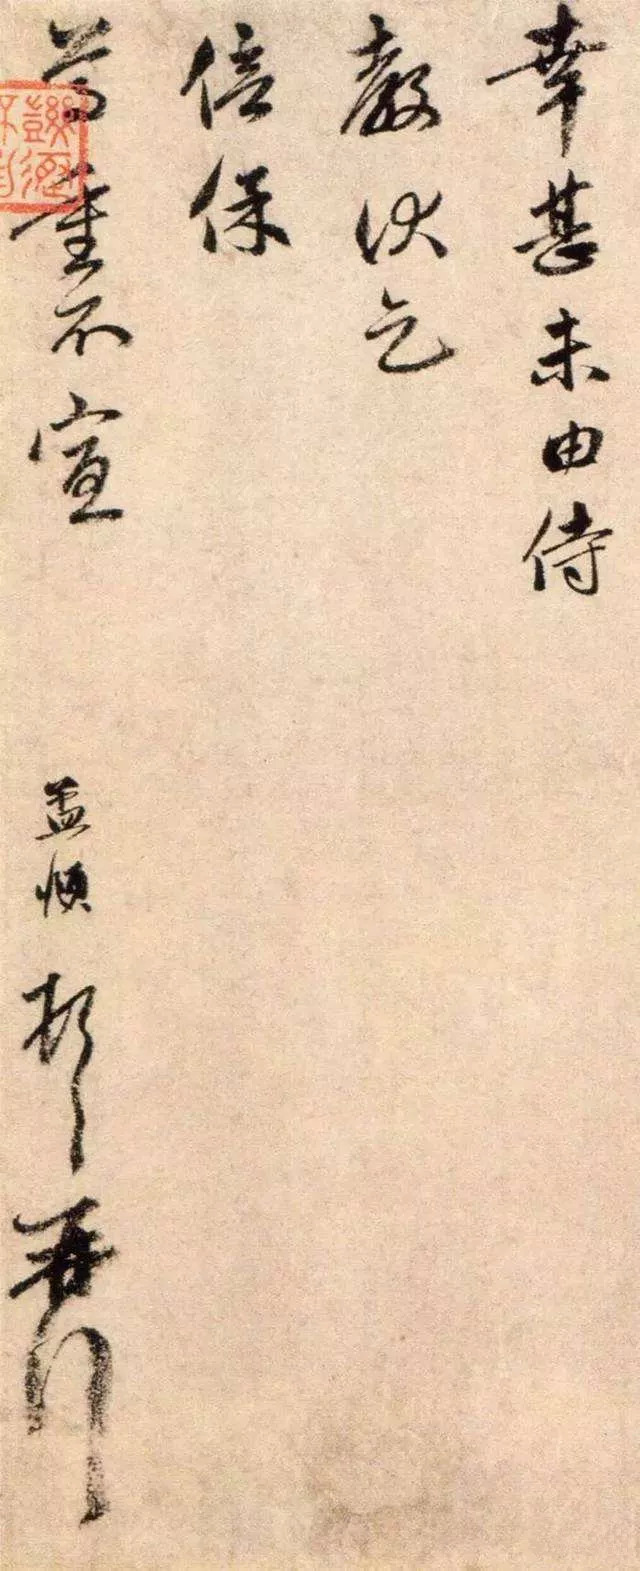 幸甚未由侍
教伏乞
倍保
尊重不宣
孟頫頓首再拜